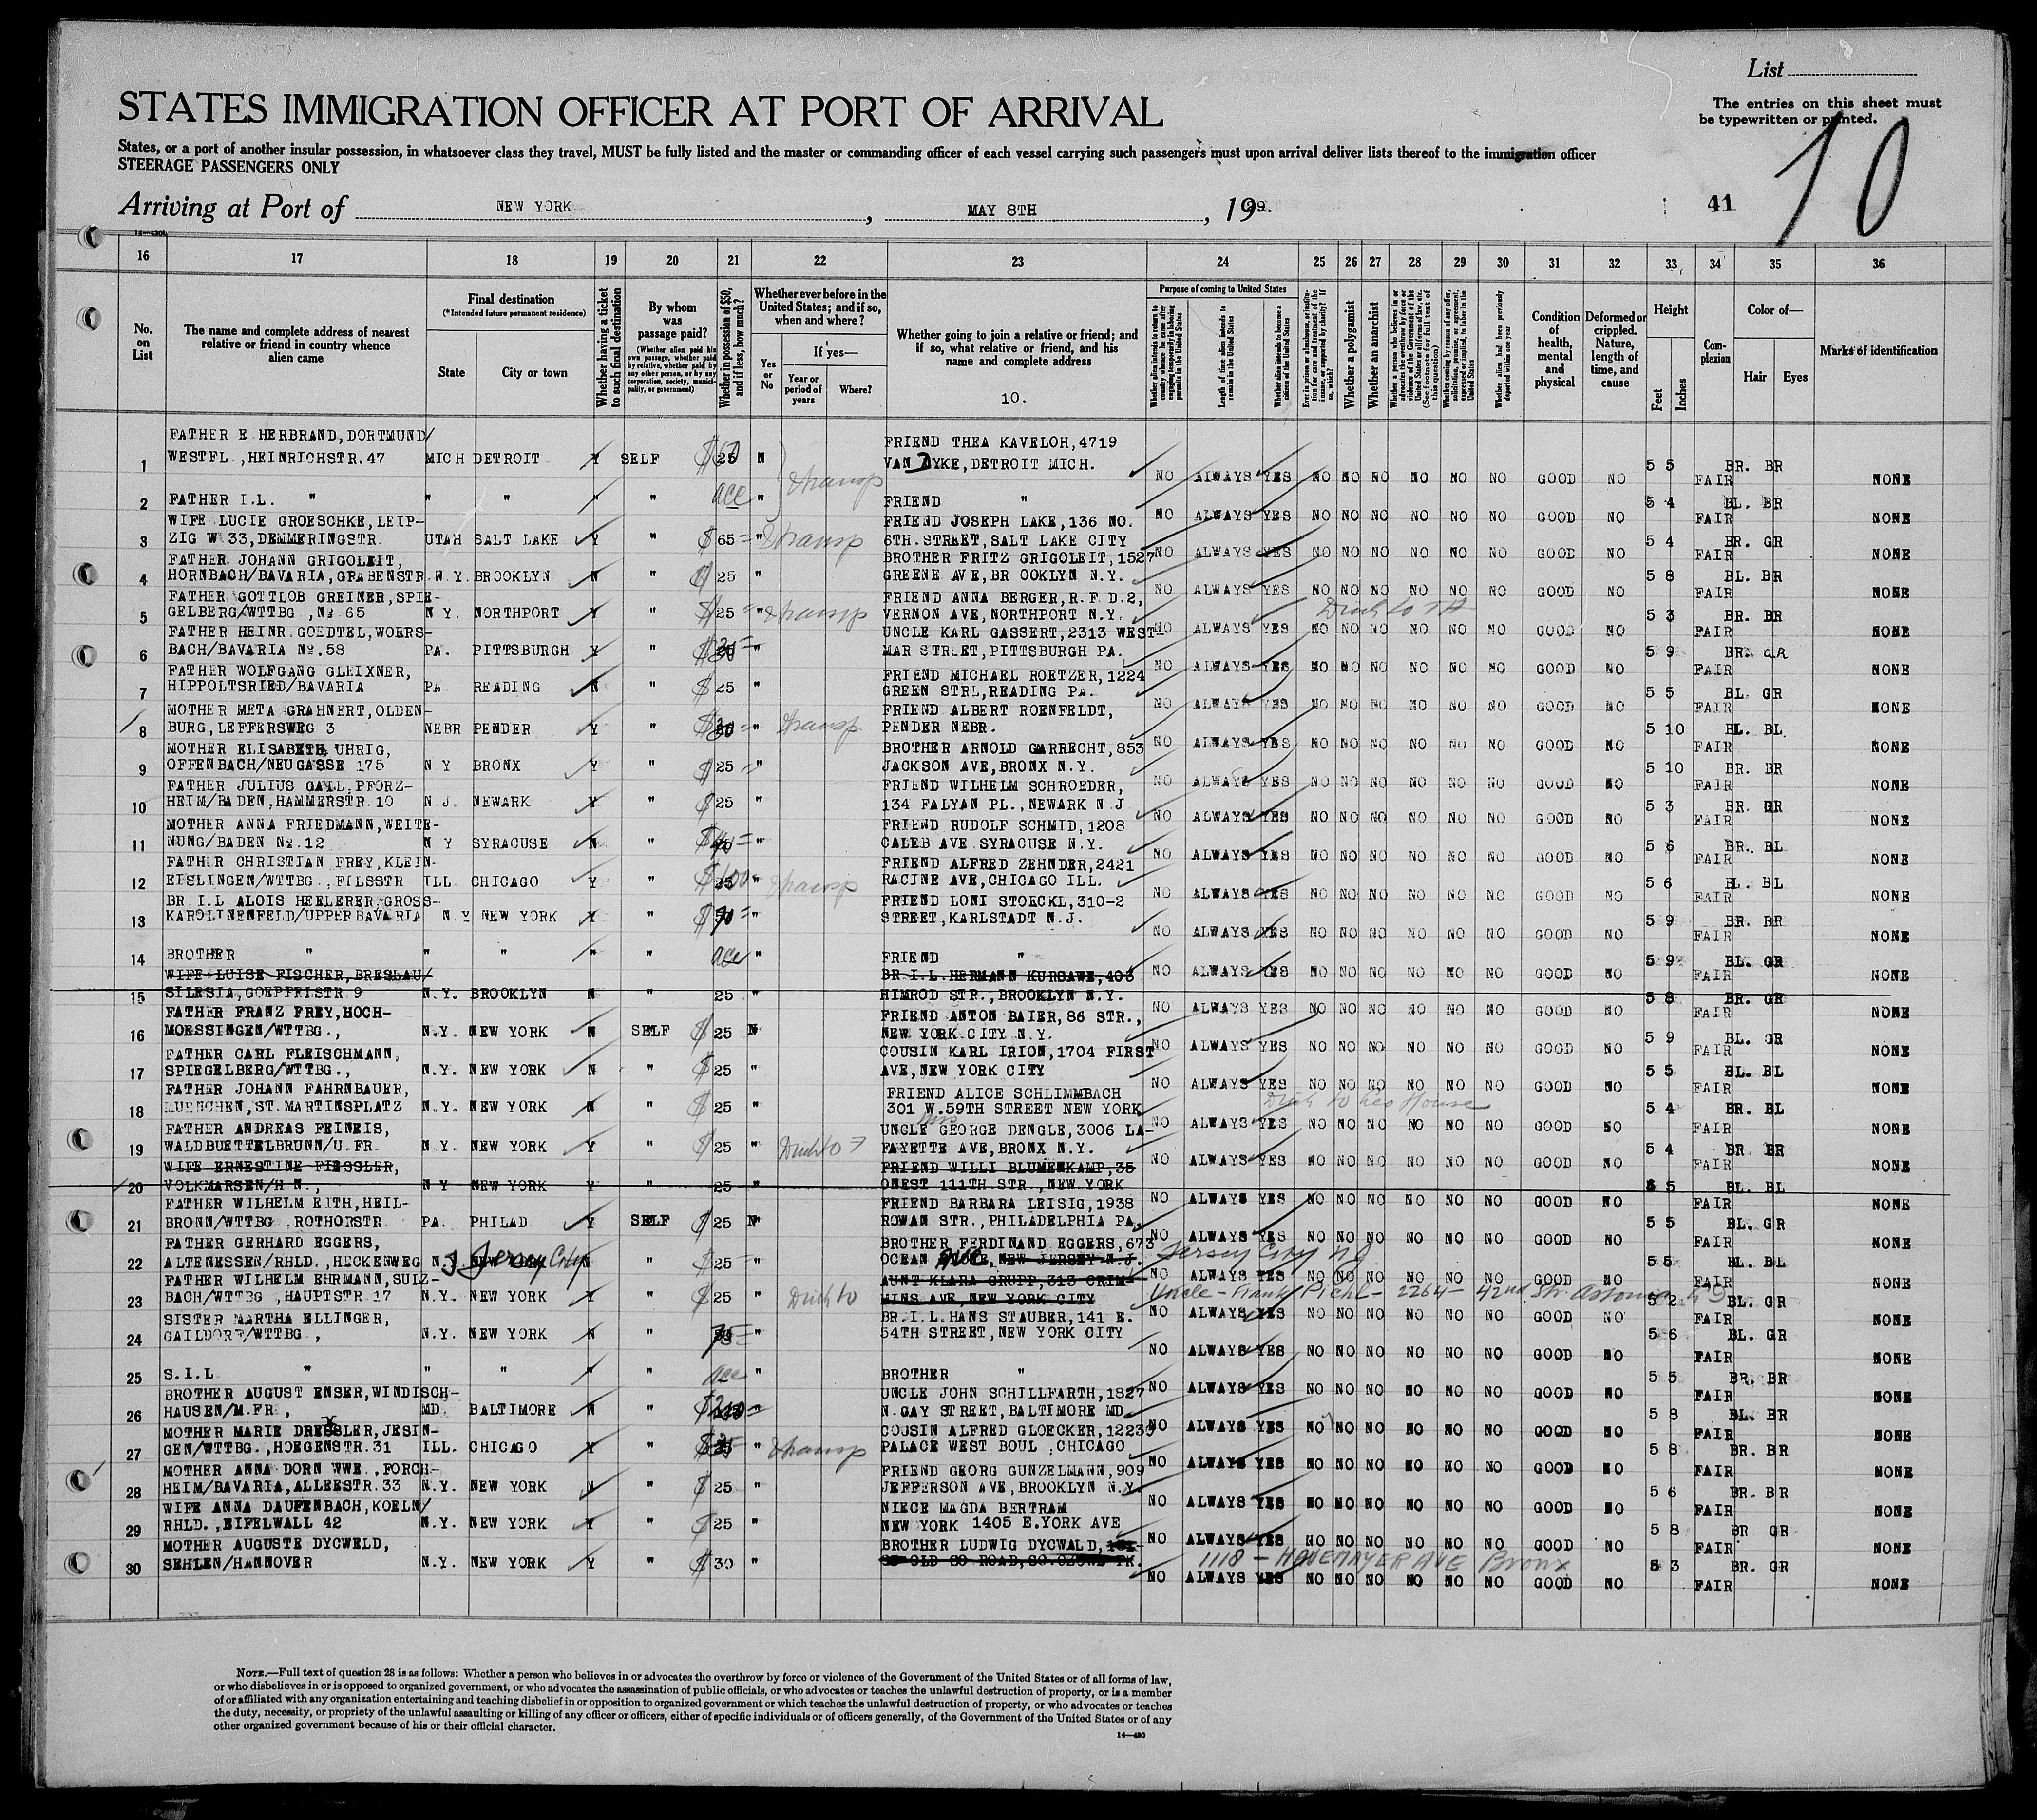 List
The entries on this sheet must
be typewritten or printed.
STATES IMMIGRATION OFFICER AT PORT OF ARRIVAL
10
States, or a port of another insular possession, in whatsoever class they travel, MUST be fully listed and the master or commanding officer of each vessel carrying such passengers must upon arrival deliver lists thereof to the immigration officer
STEERAGE PASSENGERS ONLY
Arriving at Port of NEW YORK, MAY 8TH, 1929. 41
16 17 18 19 20 21 22 23 24 25 26 27 28 29 30 31 32 33 34 35 36
No. on List
The name and complete address of nearest relative or friend in country whence alien came
Final destination
(*Intended future permanent residence)
State City or town
Whether having a ticket to such final destination
By whom was passage paid?
(Whether alien paid his own passage, whether paid by relative, whether paid by any other person, or by any corporation, society, municipality, or government)
Whether in possession of $50, and if less, how much?
Whether ever before in the United States; and if so, when and where?
Yes or No
If yes—
Year or period of years Where?
Whether going to join a relative or friend; and if so, what relative or friend, and his name and complete address
10.
Purpose of coming to United States
Length of time alien intends to remain in the United States
Whether alien intends to become a citizen of the United States
Whether a polygamist
Whether an anarchist
(See footnote for full text of this question)
Whether alien had been previously deported within one year
Condition of health, mental and physical
Deformed or crippled. Nature, length of time, and cause
Height
Feet Inches
Complexion
Color of—
Hair Eyes
Marks of identification
FATHER E HERBRAND,DORTMUND/ FRIEND THEA KAVELOH,4719
1 WESTFL.,HEINRICHSTR.47 MICH DETROIT Y SELF $ N VAN DYKE,DETROIT MICH. NO ALWAYS YES NO NO NO NO NO NO GOOD NO 5 5 FAIR BR. BR NONE
2 FATHER I.L. " " " " " " FRIEND " NO ALWAYS YES NO NO NO NO NO NO GOOD NO 5 4 FAIR BL. BR NONE
WIFE LUCIE GROESCHKE,LEIP- FRIEND JOSEPH LAKE,136 NO.
3 ZIG W 33,DEMMERINGSTR. UTAH SALT LAKE Y " $65 " transp 6TH.STREET,SALT LAKE CITY NO ALWAYS YES NO NO NO NO NO NO GOOD NO 5 4 FAIR BR. GR NONE
FATHER JOHANN GRIGOLEIT, BROTHER FRITZ GRIGOLEIT,1527
4 HORNBACH/BAVARIA,GRABENSTR N.Y. BROOKLYN N " 25 " GREENE AVE,BR OOKLYN N.Y. NO ALWAYS YES NO NO NO NO NO NO GOOD NO 5 8 FAIR BL. BR NONE
FATHER GOTTLOB GREINER,SPIE- FRIEND ANNA BERGER,R.F.D.2,
5 GELBERG/WTTBG ,No 65 N Y. NORTHPORT Y " $25 " transp VERNON AVE,NORTHPORT N.Y. NO ALWAYS YES NO NO NO NO NO NO GOOD NO 5 3 FAIR BR. BR NONE
FATHER HEINR.GOEDTEL,WOERS- UNCLE KARL GASSERT,2313 WEST-
6 BACH/BAVARIA No.58 PA. PITTSBURGH Y " $ " MAR STREET,PITTSBURGH PA. NO ALWAYS YES NO NO NO NO NO NO GOOD NO 5 9 FAIR BR. GR NONE
FATHER WOLFGANG GLEIXNER, FRIEND MICHAEL ROETZER,1224
7 HIPPOLTSRIED/BAVARIA PA READING N " $25 " GREEN STRL,READING PA. NO ALWAYS YES NO NO NO NO NO NO GOOD NO 5 5 FAIR BL. GR NONE
MOTHER META GRAHNERT,OLDEN- FRIEND ALBERT ROENFELDT,
8 BURG,LEFFERSWEG 3 NEBR PENDER Y " $ " transp PENDER NEBR. NO ALWAYS YES NO NO NO NO NO NO GOOD NO 5 10 FAIR BL. BL NONE
MOTHER ELISABETH UHRIG, BROTHER ARNOLD GARRECHT,853
9 OFFENBACH/NEUGASSE 175 N Y BRONX Y " $25 " JACKSON AVE,BRONX N.Y. NO ALWAYS YES NO NO NO NO NO NO GOOD NO 5 10 FAIR BR. BR NONE
FATHER JULIUS GALL,PFORZ- FRIEND WILHELM SCHROEDER,
10 HEIM/BADEN,HAMMERSTR.10 N.J. NEWARK Y " $25 " 134 FALYAN PL.,NEWARK N J NO ALWAYS YES NO NO NO NO NO NO GOOD NO 5 3 FAIR BR. GR NONE
MOTHER ANNA FRIEDMANN,WEITE- FRIEND RUDOLF SCHMID,1208
11 NUNG/BADEN No.12 N Y SYRACUSE N " $ " CALEB AVE SYRACUSE N.Y. NO ALWAYS YES NO NO NO NO NO NO GOOD NO 5 6 FAIR BR. BL NONE
FATHER CHRISTIAN FREY,KLEIN- FRIEND ALFRED ZEHNDER,2421
12 EISLINGEN/WTTBG.,FILSSTR ILL CHICAGO Y " $100 " transp RACINE AVE,CHICAGO ILL. NO ALWAYS YES NO NO NO NO NO NO GOOD NO 5 6 FAIR BL. BL NONE
BR I.L ALOIS HEELERER,GROSS- FRIEND LONI STOECKL,310-2
13 KAROLINENFELD/UPPER BAVARIA N.Y NEW YORK Y " $ " STREET,KARLSTADT N.J. NO ALWAYS YES NO NO NO NO NO NO GOOD NO 5 9 FAIR BR. BR NONE
14 BROTHER " " " " " " FRIEND " NO ALWAYS YES NO NO NO NO NO NO GOOD NO 5 9 FAIR BL. GR NONE
WIFE LUISE FISCHER,BRESLAU/ BR I.L.HERMANN KURSAWE,403
15 SILESIA,GOEPPELSTR 9 N.Y. BROOKLYN N " 25 " HIMROD STR.,BROOKLYN N.Y. NO ALWAYS YES NO NO NO NO NO NO GOOD NO 5 8 FAIR BR. GR NONE
FATHER FRANZ FREY,HOCH- FRIEND ANTON BAIER,86 STR.,
16 MOESSINGEN/WTTBG., N.Y. NEW YORK N SELF $25 N NEW YORK CITY N.Y. NO ALWAYS YES NO NO NO NO NO NO GOOD NO 5 9 FAIR BL. GR NONE
FATHER CARL FLEISCHMANN, COUSIN KARL IRION,1704 FIRST
17 SPIEGELBERG/WTTBG., N.Y. NEW YORK N " $25 " AVE,NEW YORK CITY NO ALWAYS YES NO NO NO NO NO NO GOOD NO 5 5 FAIR BL. BL NONE
FATHER JOHANN FAHRNBAUER, FRIEND ALICE SCHLIMMBACH
18 MUENCHEN,ST.MARTINSPLATZ N.Y. NEW YORK N " $25 " 301 W.59TH STREET NEW YORK NO ALWAYS YES NO NO NO NO NO NO GOOD NO 5 4 FAIR BR. BL NONE
FATHER ANDREAS FEINEIS, UNCLE GEORGE DENGLE,3006 LA-
19 WALDBUETTELBRUNN/U.FR. N.Y. NEW YORK Y " $25 " FAYETTE AVE,BRONX N.Y. NO ALWAYS YES NO NO NO NO NO NO GOOD NO 5 4 FAIR BR BR NONE
WIFE ERNESTINE FIESSLER, FRIEND WILLI BLUMENKAMP,35
20 VOLKMARSEN/H N., N Y NEW YORK Y " 25 " ONEST 111TH STR.,NEW YORK NO ALWAYS YES NO NO NO NO NO NO GOOD NO 5 5 FAIR BL. BL NONE
FATHER WILHELM EITH,HEIL- FRIEND BARBARA LEISIG,1938
21 BRONN/WTTBG ROTHORSTR PA. PHILAD Y SELF $25 N ROWAN STR.,PHILADELPHIA PA. NO ALWAYS YES NO NO NO NO NO NO GOOD NO 5 5 FAIR BL. GR NONE
FATHER GERHARD EGGERS, BROTHER FERDINAND EGGERS,673
22 ALTENESSEN/RHLD.,HECKENWEG N.J Jersey City " $25 " OCEAN AVE, NEW JERSEY N.J. Jersey City NJ NO ALWAYS YES NO NO NO NO NO NO GOOD NO 5 5 FAIR BL. BL NONE
FATHER WILHELM EHRMANN,SULZ- AUNT KLARA GRUPP,313 CRIM-
23 BACH/WTTBG ,HAUPTSTR.17 N.Y. NEW YORK Y " $25 " MINS AVE,NEW YORK CITY Uncle - Frank Pichl - 2264 - 42nd Str. Astoria NO ALWAYS YES NO NO NO NO NO NO GOOD NO 5 2 FAIR BL. GR NONE
SISTER MARTHA ELLINGER, BR.I.L.HANS STAUBER,141 E.
24 GAILDORF/WTTBG , N.Y. NEW YORK N " 75 " 54TH STREET,NEW YORK CITY NO ALWAYS YES NO NO NO NO NO NO GOOD NO 5 6 FAIR BL. GR NONE
25 S.I.L " " " " " " BROTHER " NO ALWAYS YES NO NO NO NO NO NO GOOD NO 5 5 FAIR BR. BR NONE
BROTHER AUGUST ENSER,WINDISCH- UNCLE JOHN SCHILLFARTH,1827
26 HAUSEN/M.FR , MD. BALTIMORE N " $ " N.GAY STREET,BALTIMORE MD. NO ALWAYS YES NO NO NO NO NO NO GOOD NO 5 8 FAIR BL. BR NONE
MOTHER MARIE DRESSLER,JESIN- COUSIN ALFRED GLOECKER,12230
27 GEN/WTTBG.,HOEGENSTR.31 ILL. CHICAGO Y " $ " transp PALACE WEST BOUL ,CHICAGO NO ALWAYS YES NO NO NO NO NO NO GOOD NO 5 8 FAIR BR. BR NONE
MOTHER ANNA DORN WWE.,FORCH- FRIEND GEORG GUNZELMANN,909
28 HEIM/BAVARIA,ALLEESTR.33 N.Y. NEW YORK N " $25 " JEFFERSON AVE,BROOKLYN N.Y. NO ALWAYS YES NO NO NO NO NO NO GOOD NO 5 6 FAIR BR. BR NONE
WIFE ANNA DAUFENBACH,KOELN/ NIECE MAGDA BERTRAM
29 RHLD.,EIFELWALL 42 N.Y. NEW YORK Y " $25 " NEW YORK 1405 E.YORK AVE NO ALWAYS YES NO NO NO NO NO NO GOOD NO 5 8 FAIR BR GR NONE
MOTHER AUGUSTE DYCWELD, BROTHER LUDWIG DYCWALD,
30 SEHLEN/HANNOVER N.Y. NEW YORK Y " $30 " 1118 - HAVEMAYER AVE Bronx NO ALWAYS YES NO NO NO NO NO NO GOOD NO 5 3 FAIR BR. GR NONE
NOTE.—Full text of question 28 is as follows: Whether a person who believes in or advocates the overthrow by force or violence of the Government of the United States or of all forms of law,
or who disbelieves in or is opposed to organized government, or who advocates the assassination of public officials, or who advocates or teaches the unlawful destruction of property, or is a member
of or affiliated with any organization entertaining and teaching disbelief in or opposition to organized government or which teaches the unlawful destruction of property, or who advocates or teaches
the duty, necessity, or propriety of the unlawful assaulting or killing of any officer or officers, either of specific individuals or of officers generally, of the Government of the United States or of any
other organized government because of his or their official character.
14—430